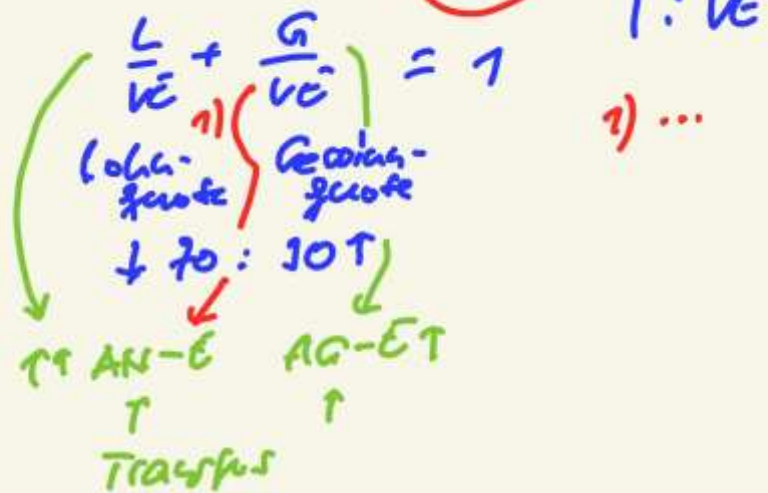 | : VE
L/VE + G/VE = 1
1) 1) ...
Lohn- Gewinn-
quote quote
↓ 70 : 30 ↑
↑↑ AN-E AG-E ↑
↑ ↑
Transfers